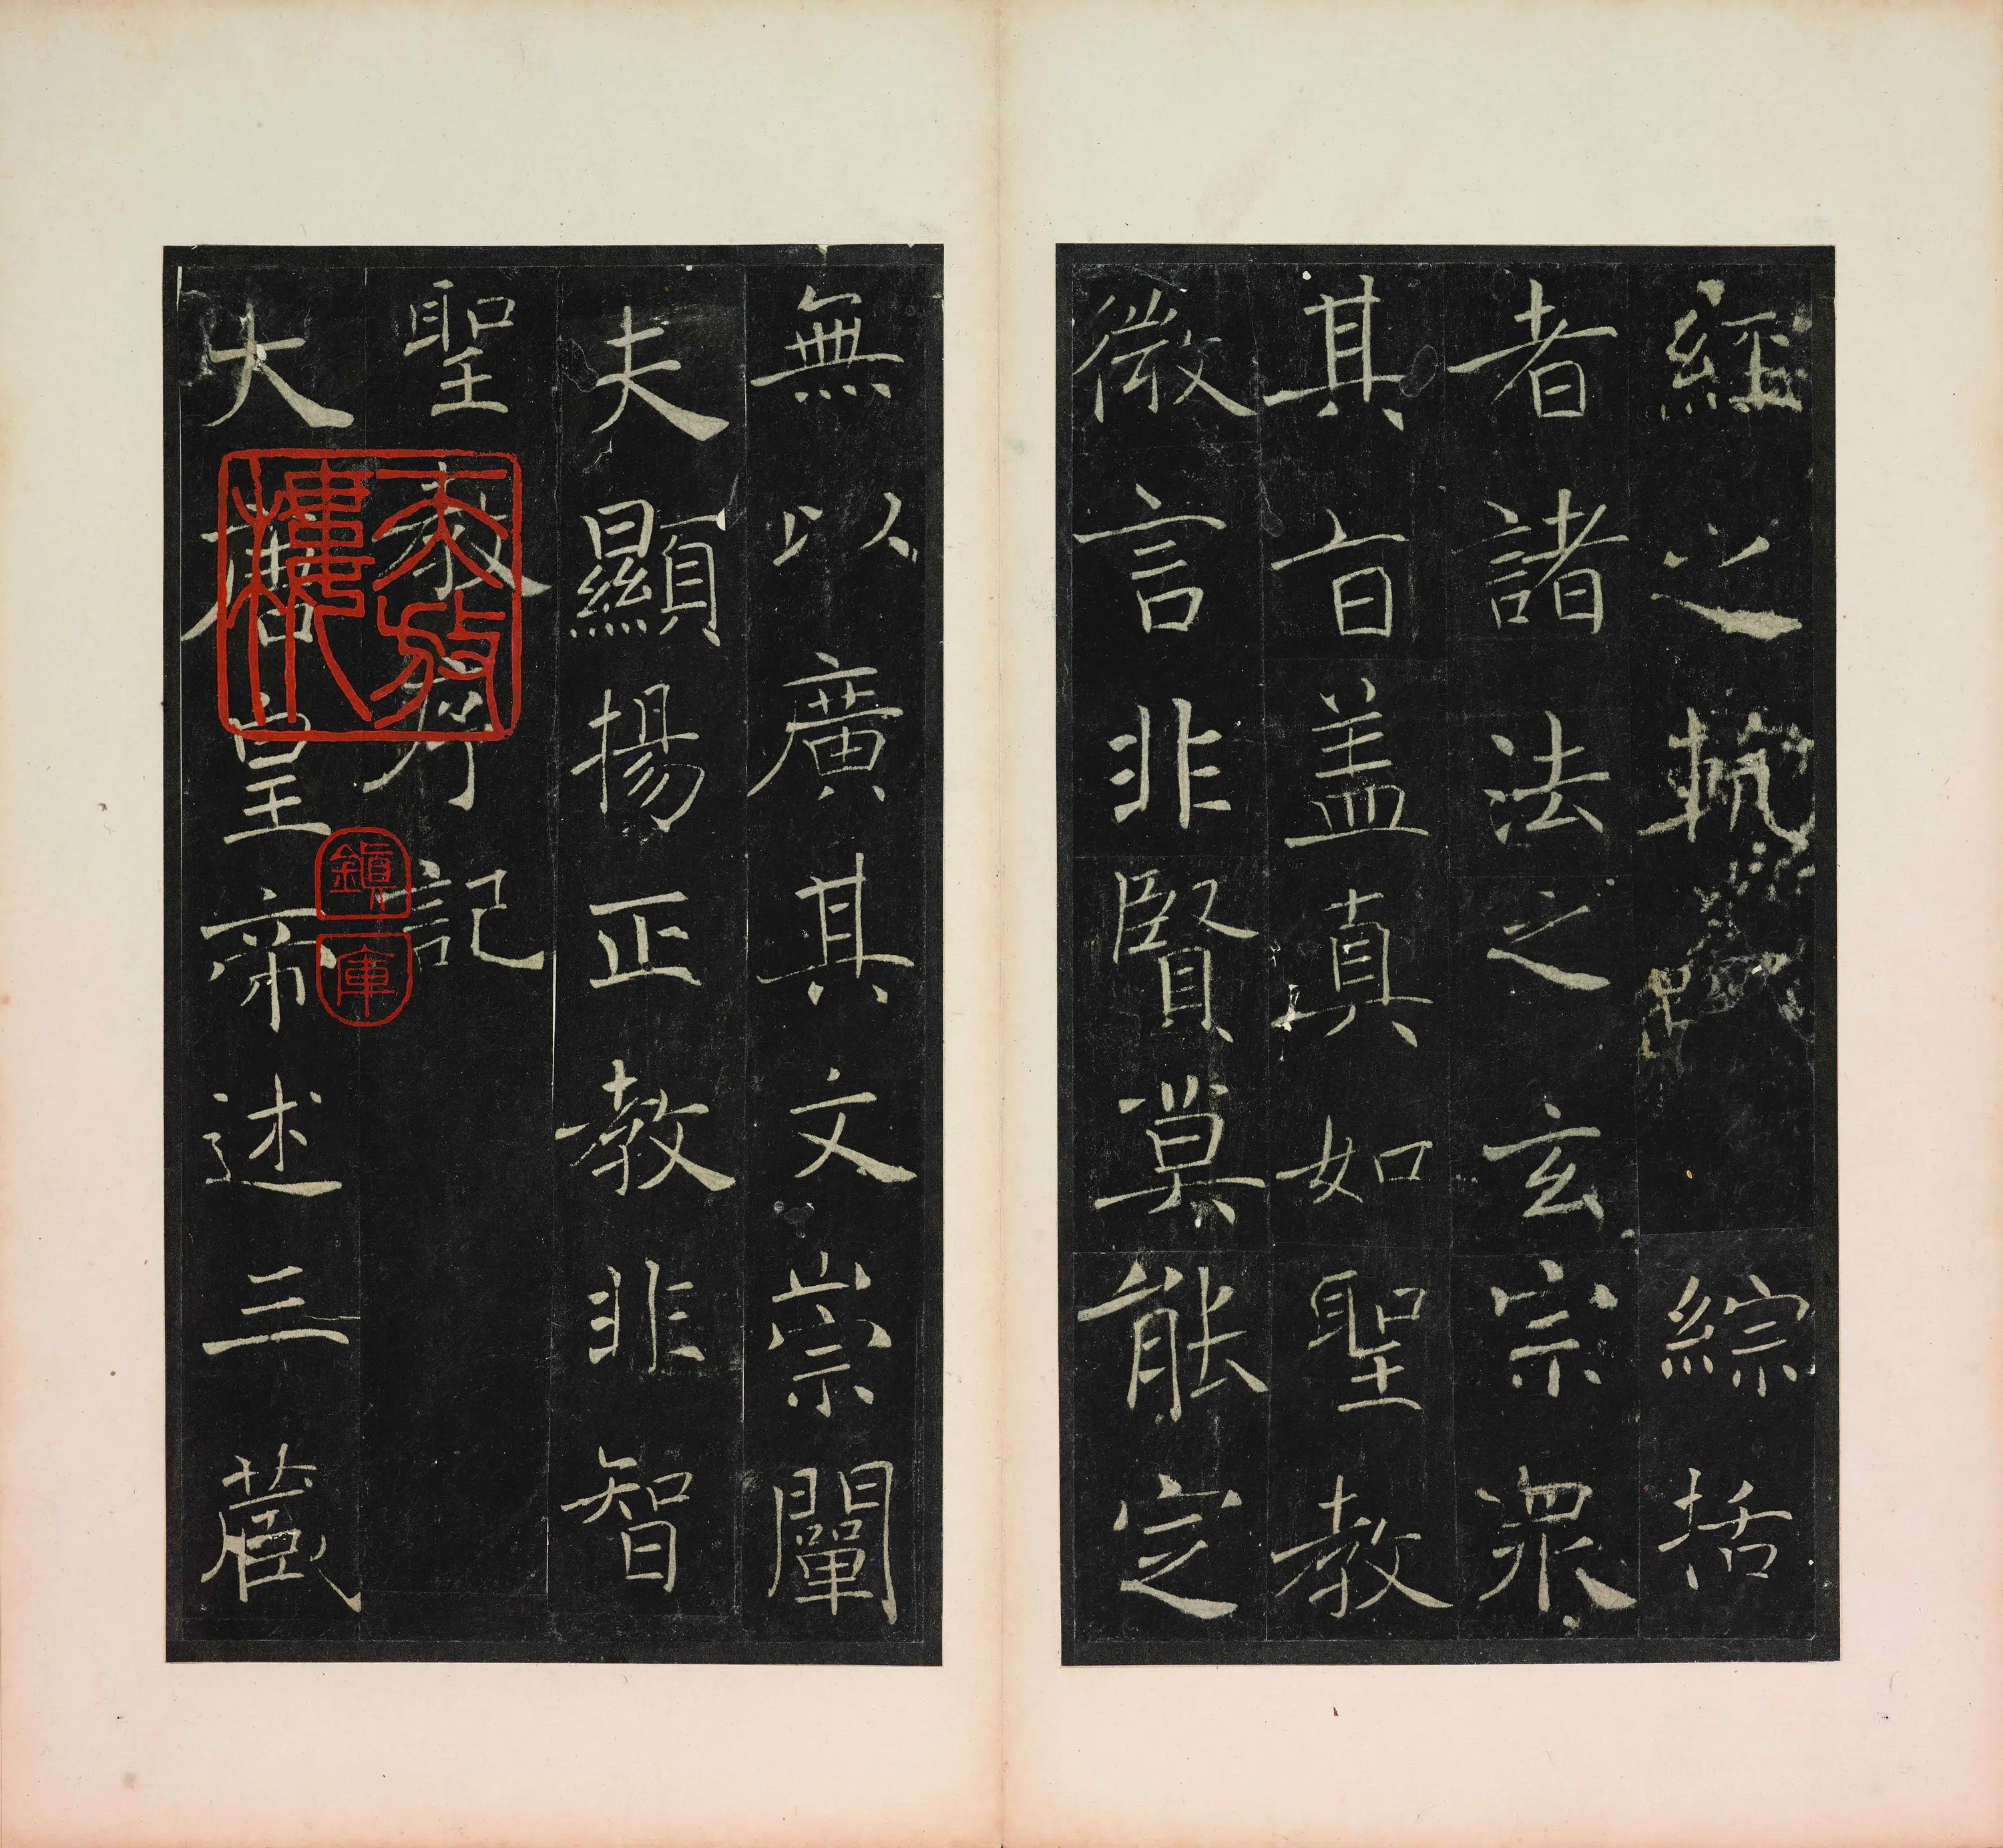 大唐皇帝述三藏
聖教序記
夫顯揚正教非智
無以廣其文崇闡
微言非賢莫能定
其旨盖真如聖教
者諸法之玄宗衆
經之軌綜括
天放樓
鎮庫